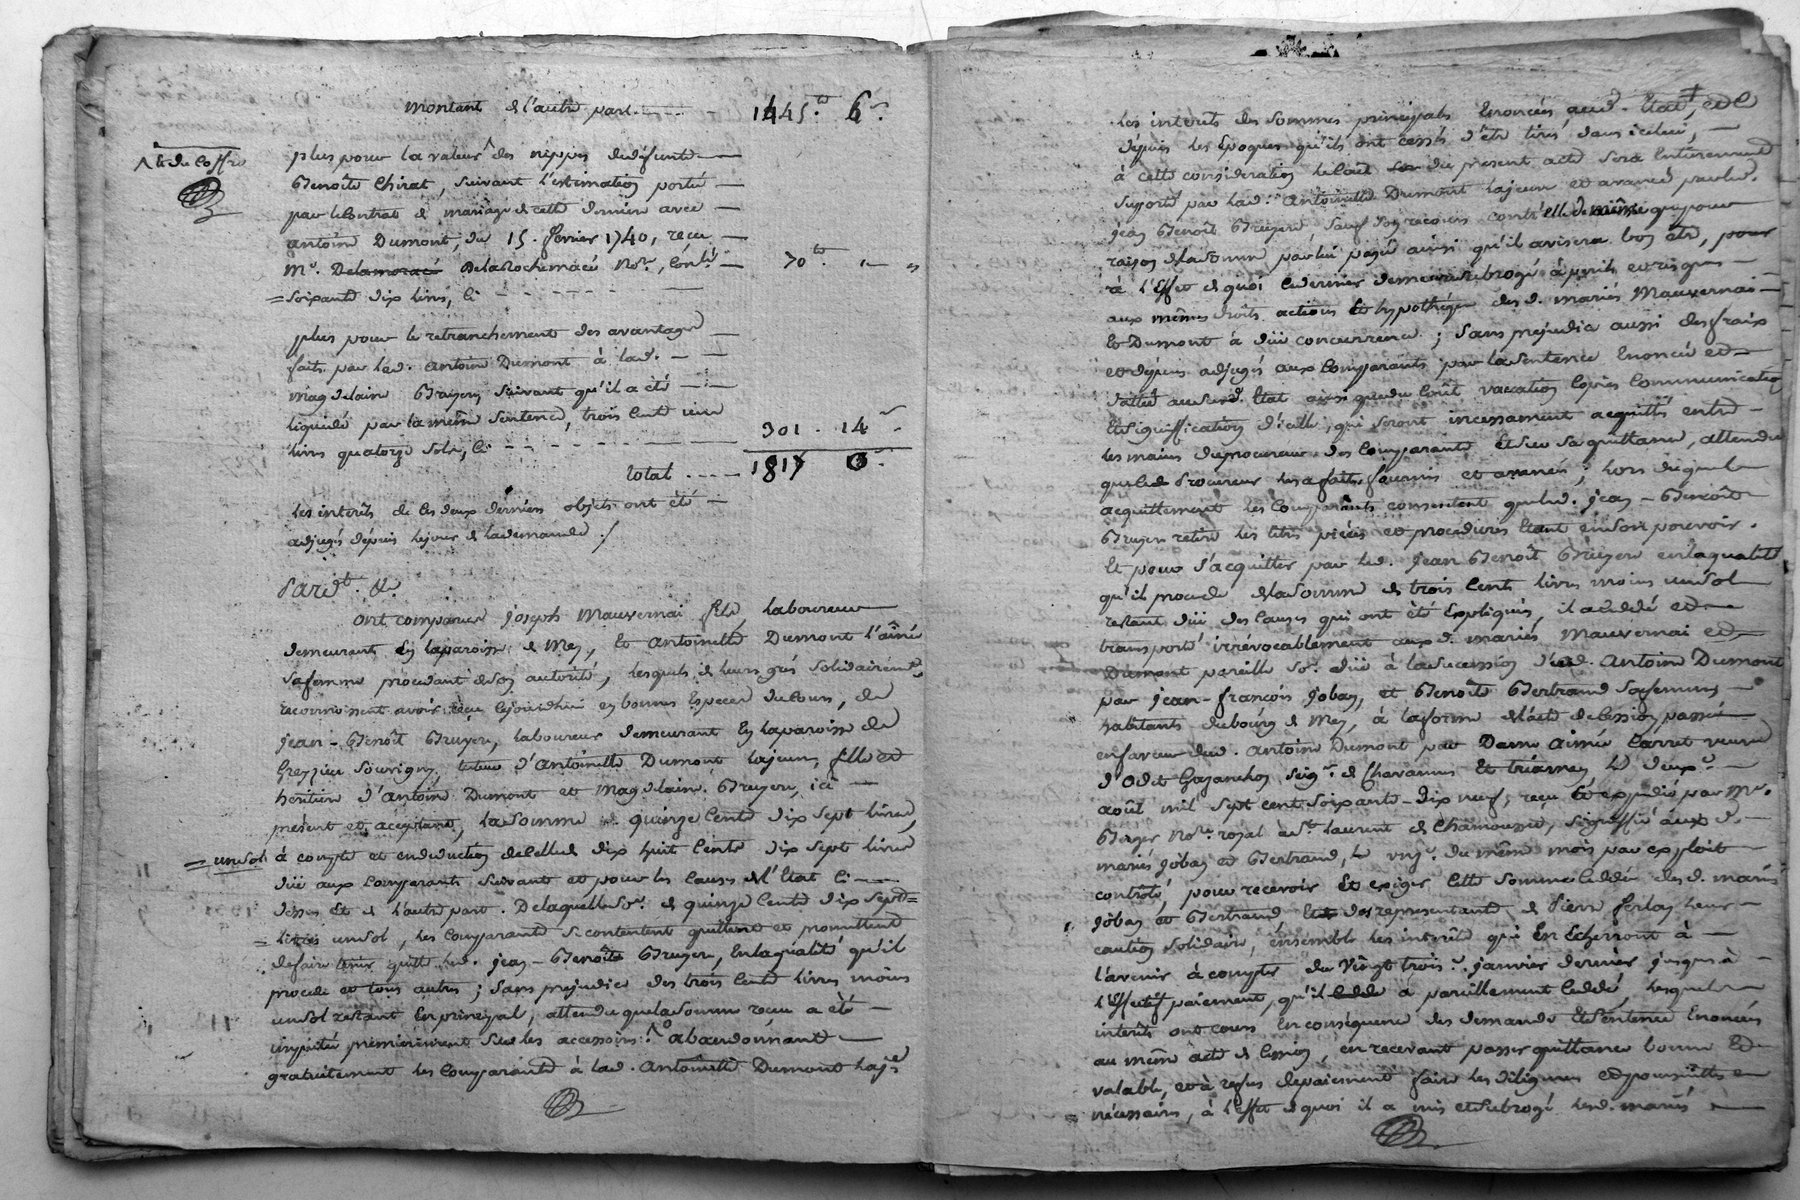 montant de l'autre part 1445.tt 6.s
^ & du coffre
plus pour la valeur ^ des nippes de deffunte
Benoîte Chirat, suivant l'estimation porté
par le contrat de mariage de cette derniere avec
antoine Dumont, du 15. fevrier 1740, recu
Me. Delamoracé DelaRochemacé Nore, Conlé 70tt. "
= soixante dix livres, Ci
plus pour le retranchement des avantages
faits par led. Antoine Dumont à lad.
magdelaine Bruyere, suivant qu'il a été
liquidé par la même sentence, trois cents une
livres quatorze sols, Ci 301. 14s
total 1817 0.s
les interets de ces deux derniers objets ont été
adjugés depuis le jour de la demande ./
Pardt. &.
ont comparus joseph Mauvernai fils, laboureur
demeurant en la paroisse de Mey, et Antoinette Dumont l'ainée
sa femme procedant de son autorité, lesquels de leurs gré solidairement
reconnoissent avoir reçu cejourdhui en bonnes Especes du cours, de
jean-Benoît Bruyere, laboureur demeurant En la paroisse de
Grezieu Souvigny, tuteur d'Antoinette Dumont lajeune, fille et
heritiere d'Antoine Dumont et Magdelaine Bruyere, ici
present et acceptant, la somme de quinze Cents dix sept livres,
= un sol à compte et en deduction de celle de dix huit Cents dix sept livres
düe aux comparants suivant et pour les causes de l'Etat Ci
dessus Et de l'autre part. De laquelle some. de quinze Cents dix sept
= livres un sol, les comparants se contentent quittent et promettent
de faire tenir quitte led. jean-Benoît Bruyere, En la qualité qu'il
procede et tous autres; sans prejudice des trois Cents livres moins
un sol restant En principal, attendu que la somme reçue a été
imputée premierement sur les accessoires. abandonnant
gratuitement les Comparants à lad. Antoinette Dumont laje
les interets des sommes principales Enoncées aud. Etat, et de
depuis les Epoques qu'ils ont cessés d'être tirés dans icelui,
à cette consideration le Coût du present acte sera Entierement
suporté par lad. Antoinette Dumont lajeune et avancé par led.
jean Benoît Bruyere sauf son recours contr'elle de même que pour
raison de la somme par lui payée ainsi qu'il avisera bon être, pour
à l'Effet de quoi ce dernier demeure subrogé à perils et risques
aux mêmes droits actions Et hypothéques desd. mariés Mauvernai
Et Dumont à düe concurrence; sans prejudice aussi des fraix
et depens adjugés aux Comparants par la sentence Enoncée et
dattée au susd. Etat ainsi que du Coût vacation Copies Communication
Et Signiffication d'icelle, qui seront incessament acquittés entre
les mains du procureur des Comparants Et sur sa quittance, attendu
que led Procureur les a faits, fournis et avancés; lors duquel
acquittement les Comparants consentent que led. jean-Benoît
Bruyere retire les titres piéces et procedures étant en son pouvoir.
Et pour s'acquitter par led. jean Benoît Bruyere en la qualité
qu'il procede de la somme de trois Cent livres moins un sol
restant düe des causes qui ont été Expliquées, il a cedé et
transporté irrévocablement auxd. mariés Mauvernai et
Dumont pareille Some. düe à la succession dud. Antoine Dumont
par jean-françois joban, et Benoîte Bertrand sa femme,
habitants du bourg de Mey, à la forme de l'acte de Cession passée
en faveur dud. Antoine Dumont par Dame Aimée Carret veuve
d'Odet Gazanchon seigr. de Chavannes Et triarney, le deuxe.
août mil sept cent soixante-dix neuf, reçu Et expedié par Me.
Berger Nore. royal à St. laurent de Chamousset, signiffié auxd.
mariés joban et Bertrand, le du même mois par exploit
controlé, pour recevoir Et exiger cette somme Cedée desd. mariés
joban et Bertrand des representants de Pierre ferlay leur
caution solidaire, ensemble les interêts qui En Echerront à
l'avenir à compter du vingt troise. janvier dernier jusqu'à
l'Effectif paiement, qu'il cede a pareillement Cedé, lesquels
interêts ont cours En conséquence des demande Et Sentence Enoncées
au même acte de Cession, en recevant passer quittance bonne Et
valable, et à refus de paiement faire les diligences et poursuittes
necessaires, à l'effet de quoi il a mis et subrogé lesd. mariés